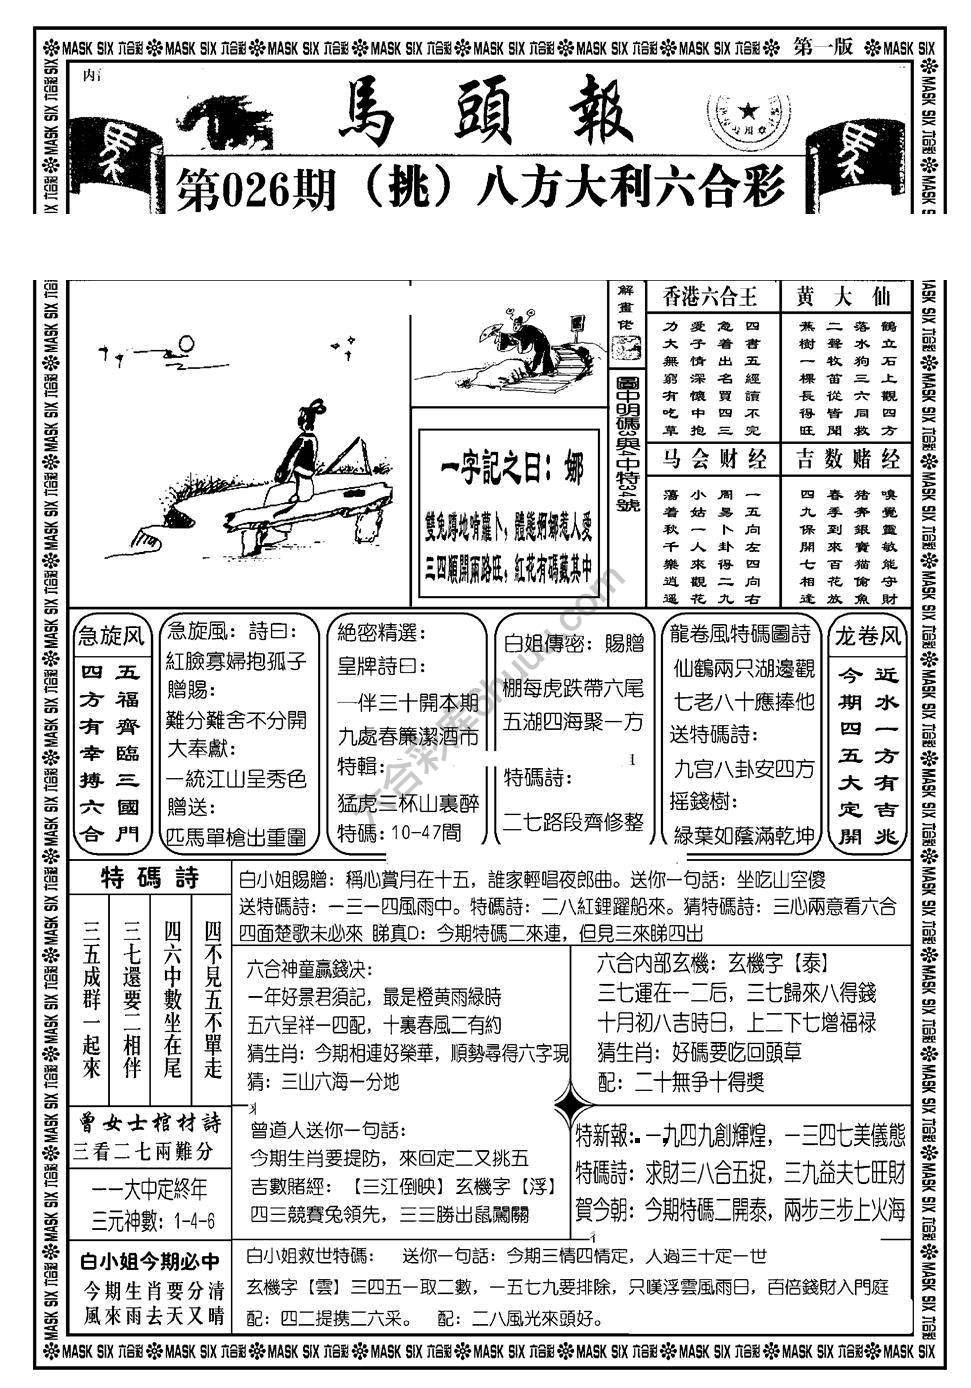 MASK SIX 六合彩 MASK SIX 六合彩 MASK SIX 六合彩 MASK SIX 六合彩 MASK SIX 六合彩 MASK SIX 六合彩 MASK SIX 六合彩 第一版 MASK SIX
馬頭報
第026期（挑）八方大利六合彩
解畫佬
圖中明碼3與4中特34號
一字記之曰：娜
雙兔蹲地啃蘿卜，體態婀娜惹人愛
三四順開兩路旺，紅花有碼藏其中
香港六合王
四書五經讀不完
急着出名買四三
愛子情深懷中抱
力大無窮有吃草
黄大仙
鶴立石上觀四方
落水狗三六同救
二聲牧笛從皆聞
蕉樹一棵長得旺
马会财经
一五向左四向右
周易卜卦得二九
小姑一人來觀花
蕩着秋千樂逍遥
吉数赌经
嗅覺靈敏能守財
豬奔銀寶猫偷魚
春季到來百花放
四九保開七相逢
急旋风
五福齊臨三國門
四方有幸搏六合
急旋風：詩曰：
紅臉寡婦抱孤子
贈賜：
難分難舍不分開
大奉獻：
一統江山呈秀色
贈送：
匹馬單槍出重圍
絕密精選：
皇牌詩曰：
一伴三十開本期
九處春簾潔酒市
特輯：
猛虎三杯山裏醉
特碼：10-47間
白姐傳密：賜贈
棚每虎跌帶六尾
五湖四海聚一方
特碼詩：
二七路段齊修整
龍卷風特碼圖詩
仙鶴兩只湖邊觀
七老八十應捧他
送特碼詩：
九宫八卦安四方
摇錢樹：
緑葉如蔭滿乾坤
龙卷风
近水一方有吉兆
今期四五大定開
特碼詩
四不見五不單走
四六中數坐在尾
三七還要二相伴
三五成群一起來
白小姐賜贈：稱心賞月在十五，誰家輕唱夜郎曲。送你一句話：坐吃山空傻
送特碼詩：一三一四風雨中。特碼詩：二八紅鋰躍船來。猜特碼詩：三心兩意看六合
四面楚歌未必來 睇真D：今期特碼二來連，但見三來睇四出
六合神童贏錢决：
一年好景君須記，最是橙黄雨緑時
五六呈祥一四配，十裏春風二有約
猜生肖：今期相連好榮華，順勢尋得六字現
猜：三山六海一分地
六合内部玄機：玄機字【泰】
三七運在一二后，三七歸來八得錢
十月初八吉時日，上二下七增福禄
猜生肖：好碼要吃回頭草
配：二十無争十得獎
曾女士棺材詩
三看二七兩難分
一一大中定終年
三元神數：1-4-6
曾道人送你一句話：
今期生肖要提防，來回定二又挑五
吉數賭經：【三江倒映】玄機字【浮】
四三競賽兔領先，三三勝出鼠闖關
特新報：一九四九創輝煌，一三四七美儀態
特碼詩：求財三八合五捉，三九益夫七旺財
賀今朝：今期特碼二開泰，兩步三步上火海
白小姐今期必中
今期生肖要分清
風來雨去天又晴
白小姐救世特碼： 送你一句話：今期三情四情定，人過三十定一世
玄機字【雲】三四五一取二數，一五七九要排除，只嘆浮雲風雨日，百倍錢財入門庭
配：四二提携二六采。 配：二八風光來頭好。
MASK SIX 六合彩 MASK SIX 六合彩 MASK SIX 六合彩 MASK SIX 六合彩 MASK SIX 六合彩 MASK SIX 六合彩 MASK SIX 六合彩 MASK SIX 六合彩 MASK SIX